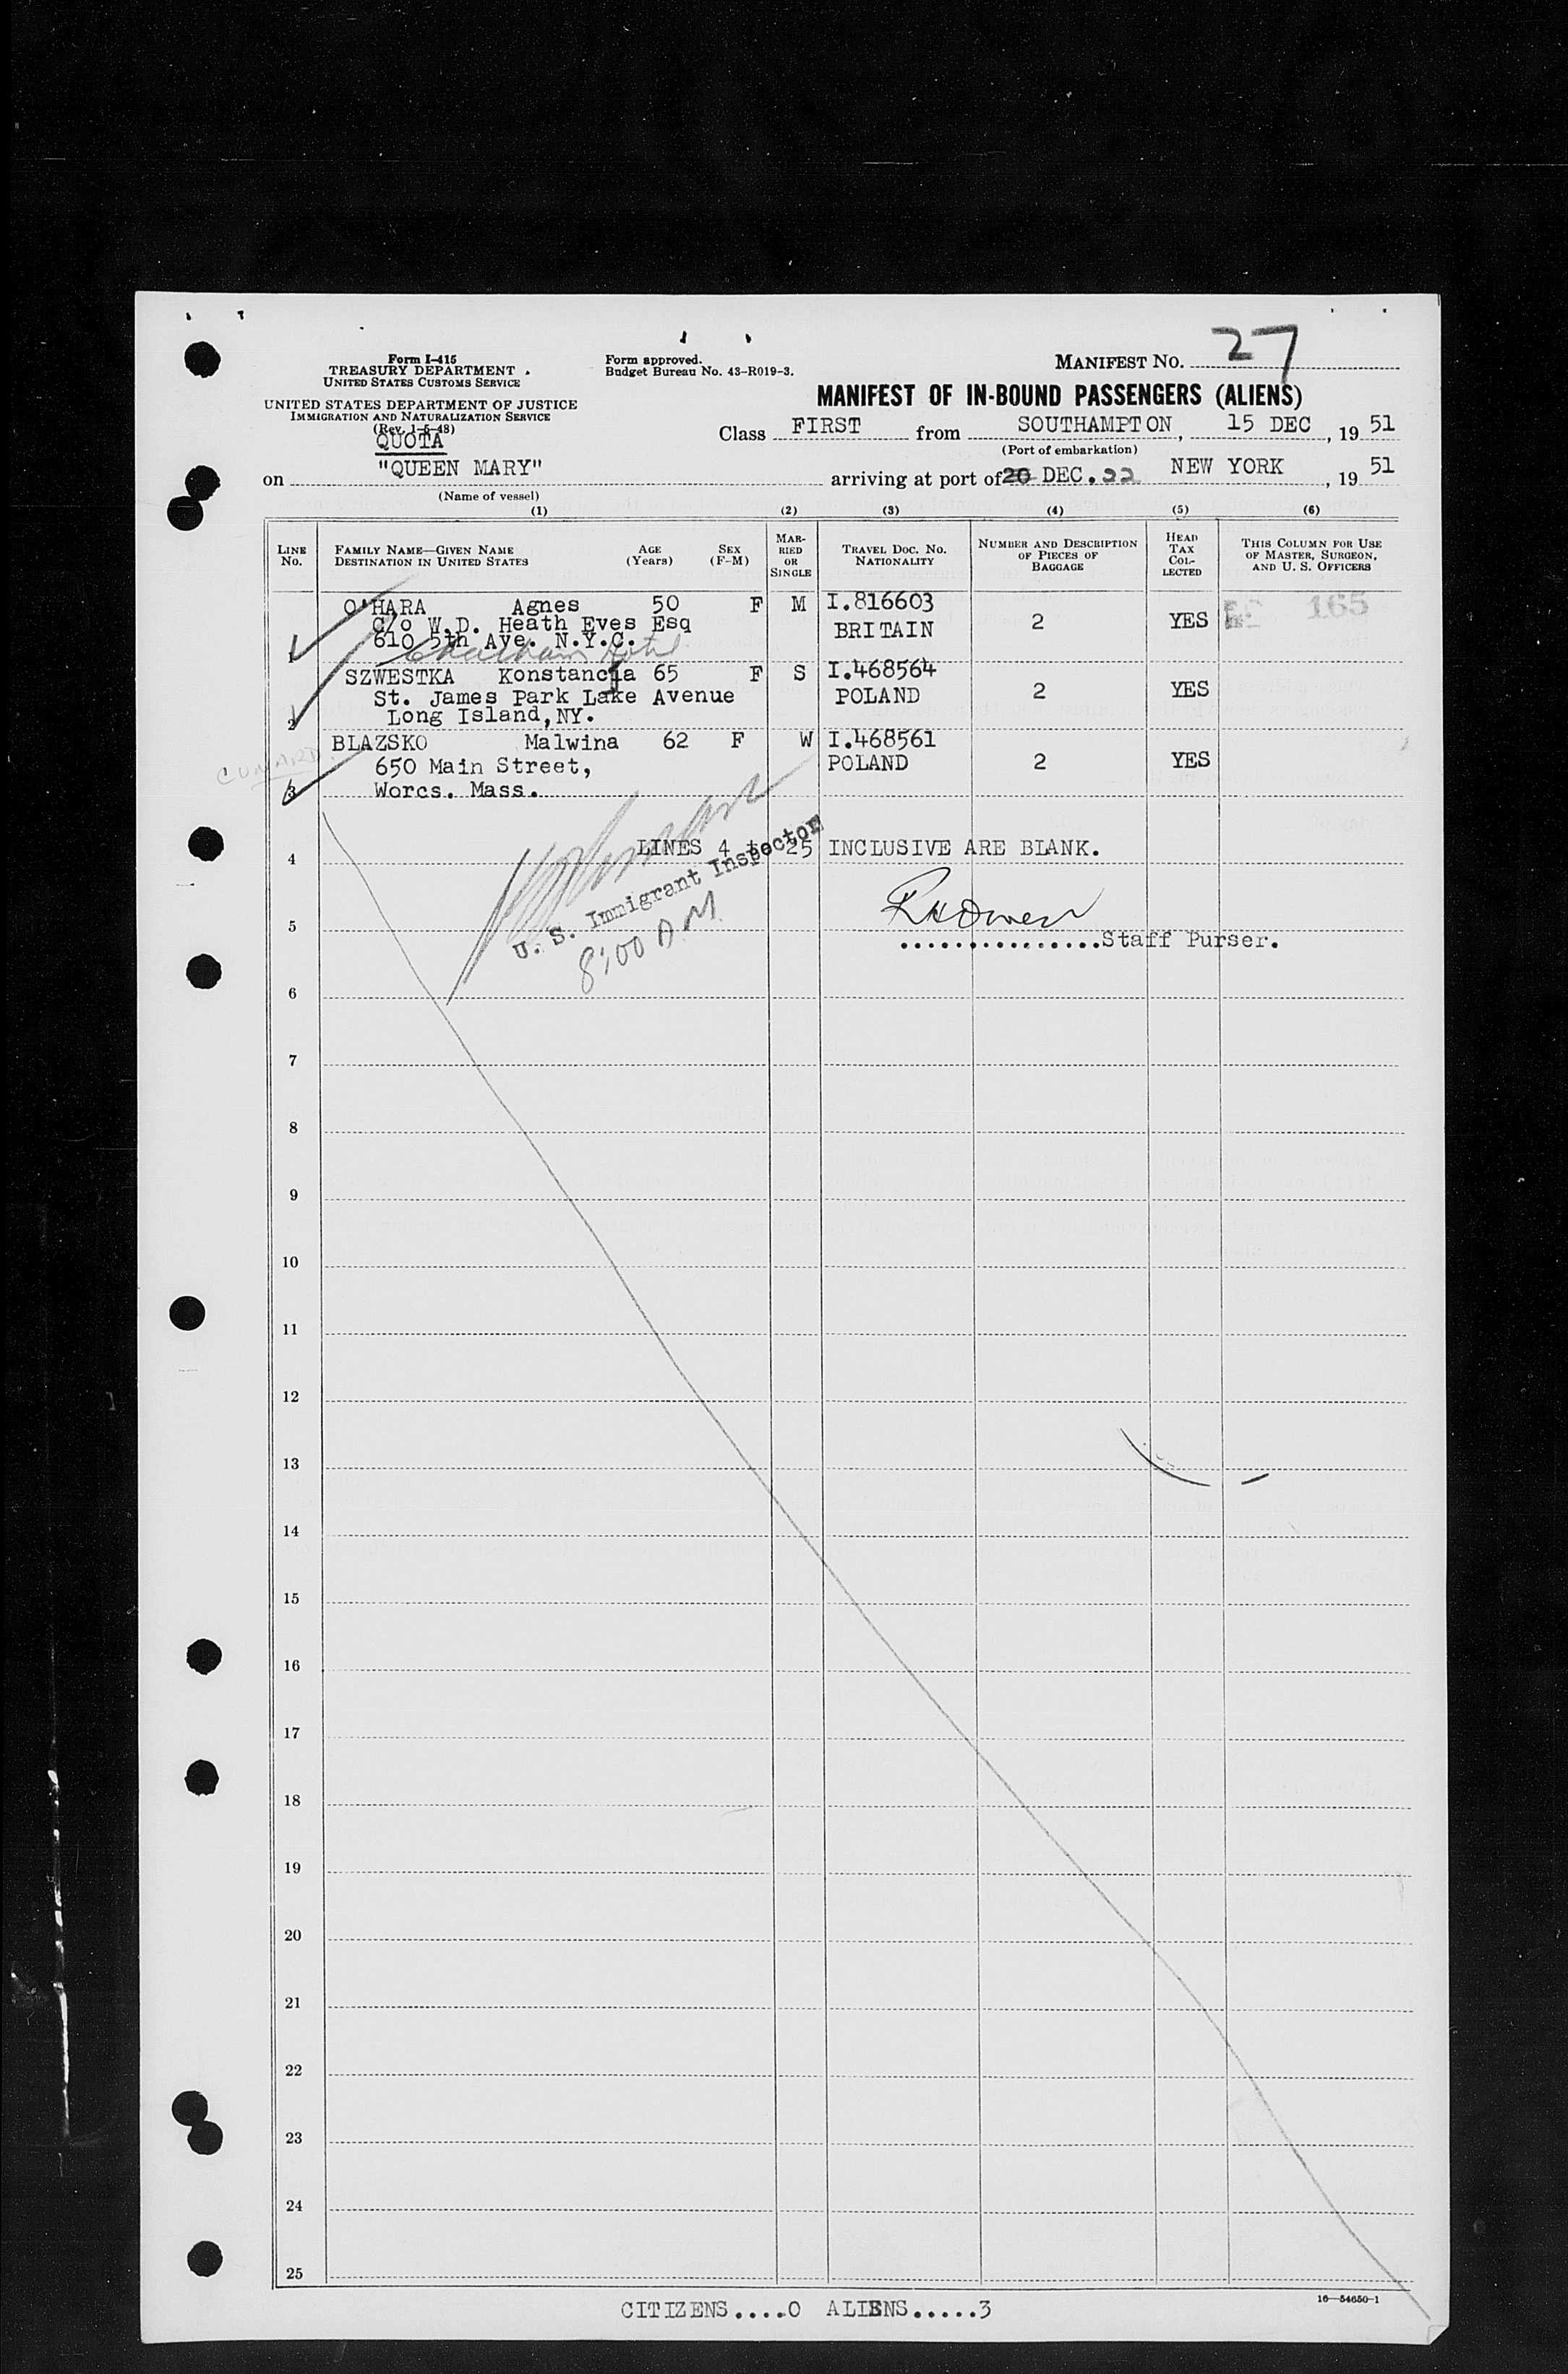 27
Form I-415
TREASURY DEPARTMENT
UNITED STATES CUSTOMS SERVICE
Form approved.
Budget Bureau No. 43-R019-3.
MANIFEST NO.
UNITED STATES DEPARTMENT OF JUSTICE
IMMIGRATION AND NATURALIZATION SERVICE
(Rev. 1-5-48)
MANIFEST OF IN-BOUND PASSENGERS (ALIENS)
QUOTA
Class FIRST from SOUTHAMPTON, 15 DEC, 19 51
(Port of embarkation)
on "QUEEN MARY" arriving at port of 20 DEC. 22 NEW YORK, 19 51
(Name of vessel)
(1) (2) (3) (4) (5) (6)
LINE NO.
FAMILY NAME—GIVEN NAME
DESTINATION IN UNITED STATES
AGE (Years)
SEX (F-M)
MARRIED OR SINGLE
TRAVEL DOC. NO.
NATIONALITY
NUMBER AND DESCRIPTION OF PIECES OF BAGGAGE
HEAD TAX COLLECTED
THIS COLUMN FOR USE OF MASTER, SURGEON, AND U. S. OFFICERS
O'HARA Agnes 50 F M I.816603 165
C/o W.D. Heath Eves Esq BRITAIN 2 YES
1 610 5th Ave. N.Y.C.
Chatham Hotel
SZWESTKA Konstancja 65 F S I.468564
St. James Park Lake Avenue POLAND 2 YES
2 Long Island,NY.
BLAZSKO Malwina 62 F W I.468561
CUNARD
650 Main Street, POLAND 2 YES
3 Worcs. Mass.
4 LINES 4 to 25 INCLUSIVE ARE BLANK.
U. S. Immigrant Inspector
8:00 A.M.
5
...............Staff Purser.
6
7
8
9
10
11
12
13
14
15
16
17
18
19
20
21
22
23
24
25
16—54650-1
CITIZENS.....0 ALIENS.....3